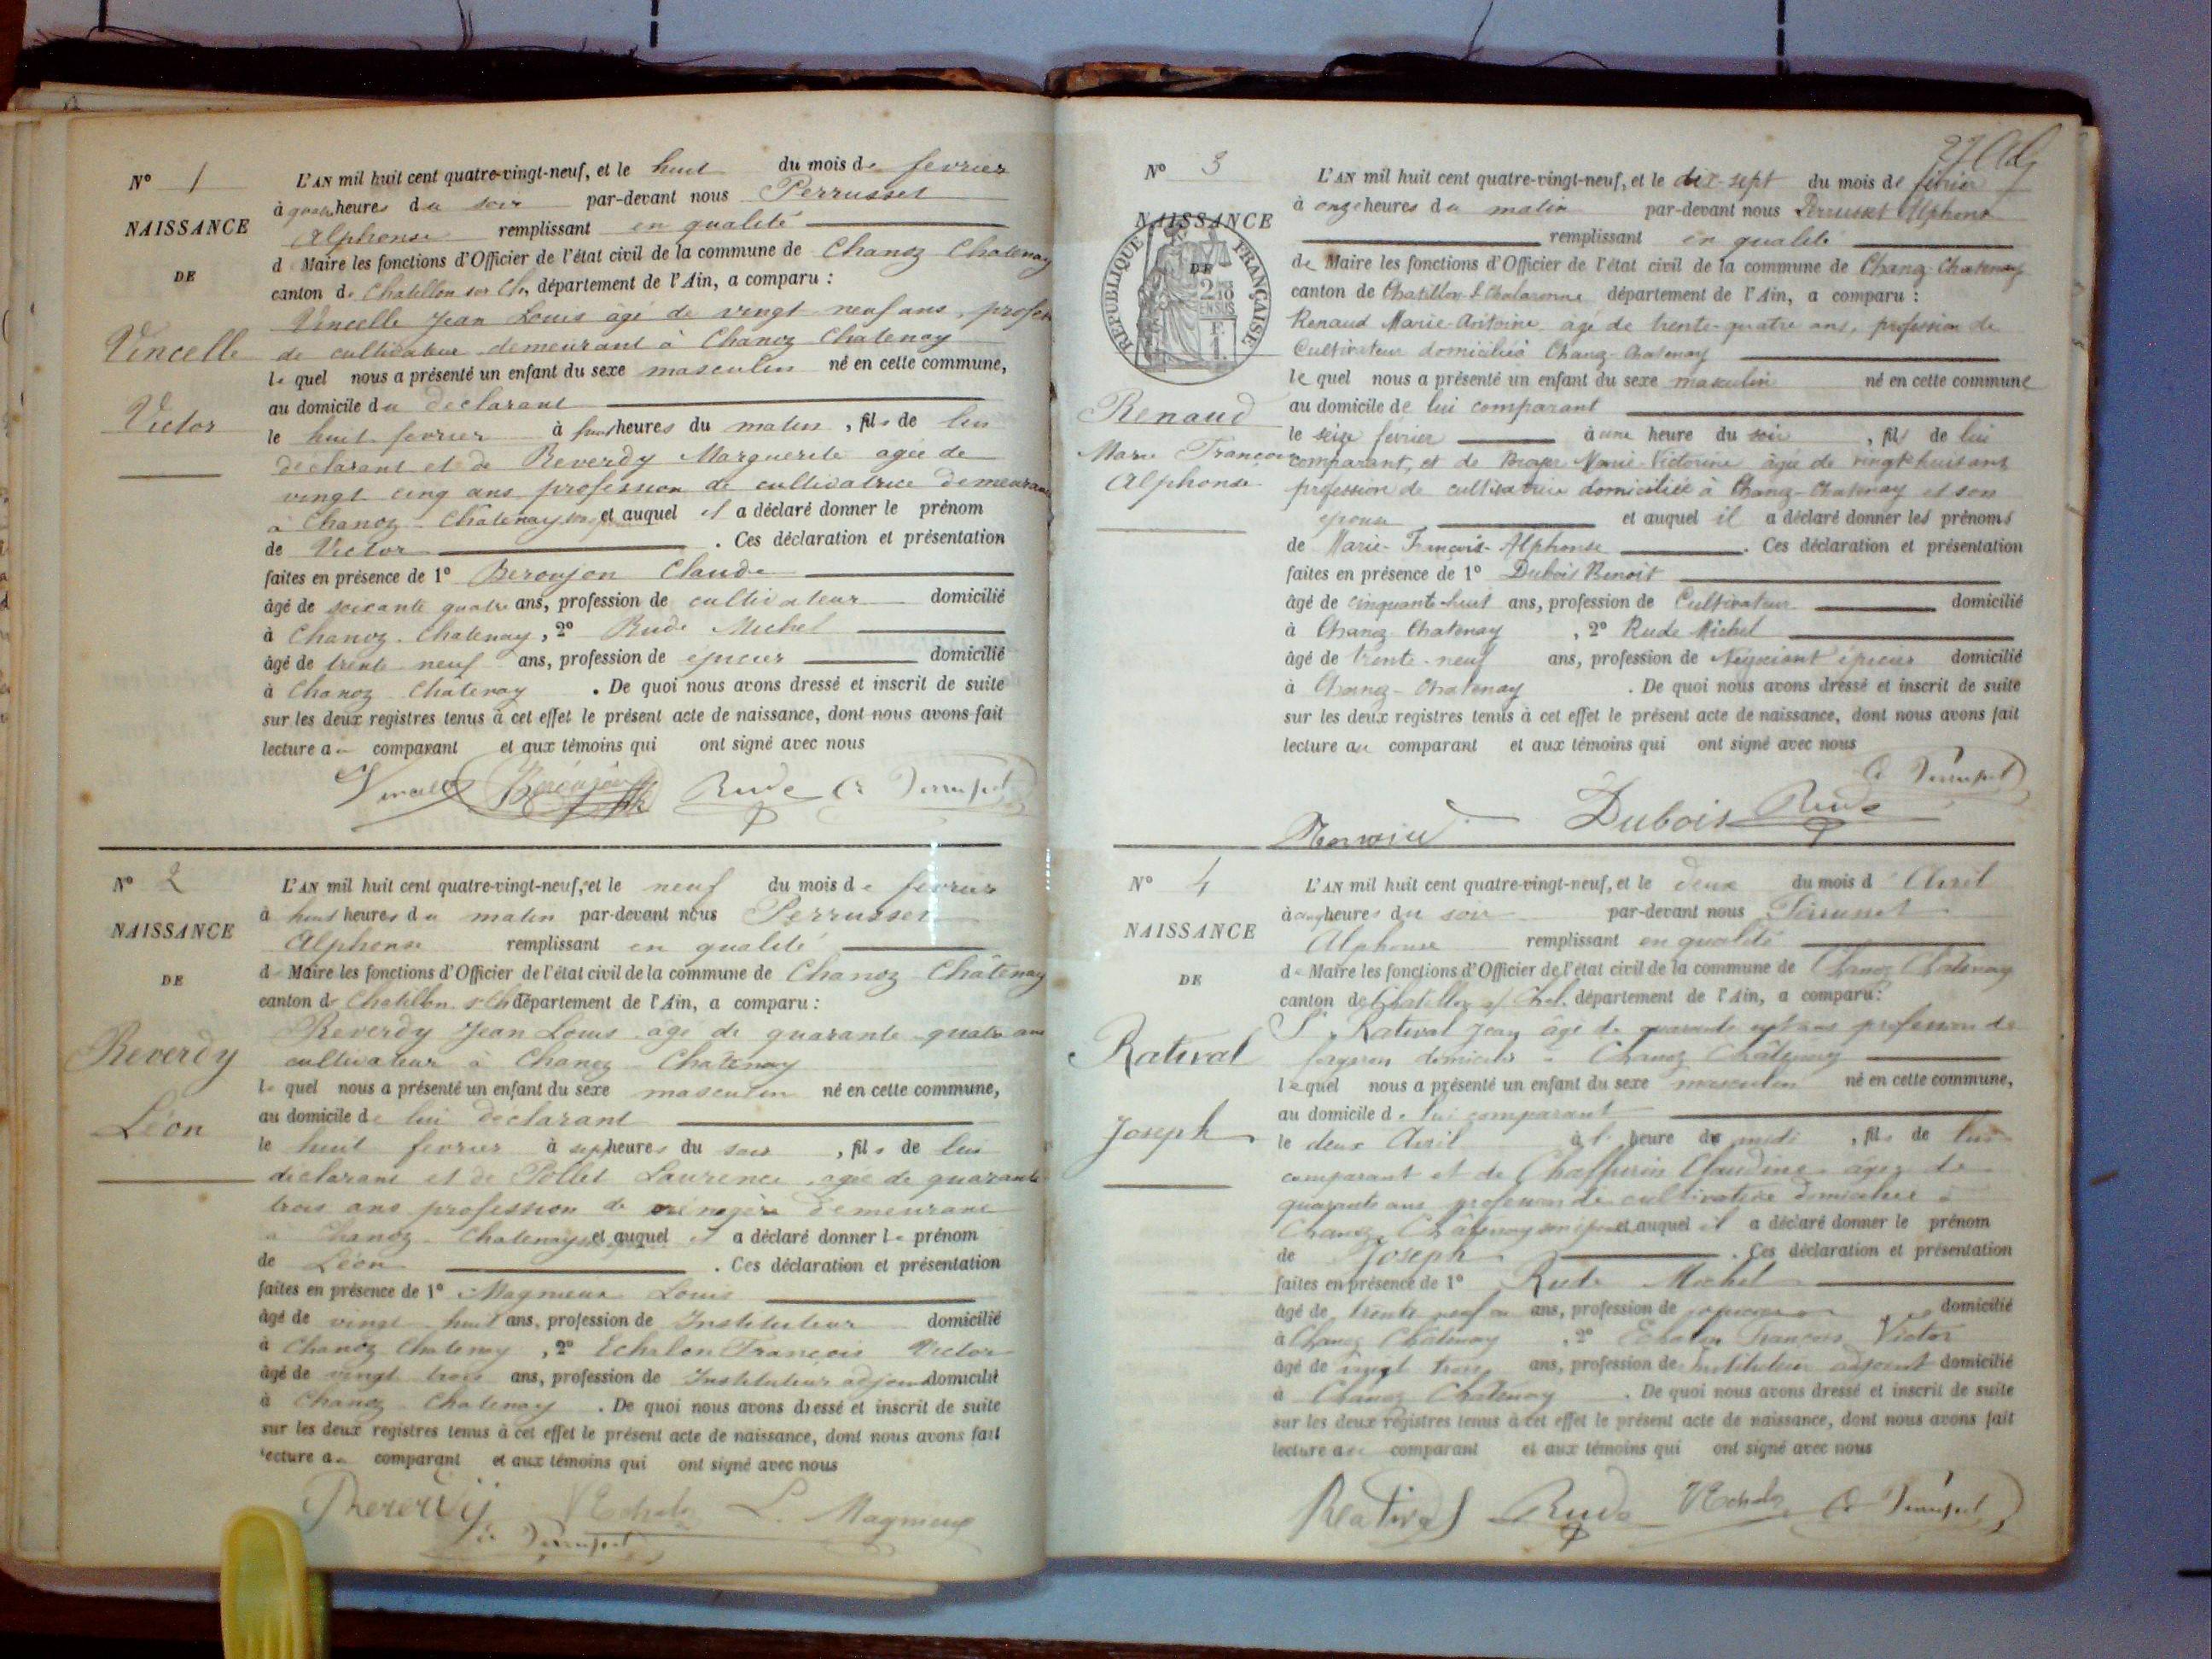 N° 1
NAISSANCE
DE
Vincelle
Victor
L'AN mil huit cent quatre-vingt-neuf, et le huit du mois de fevrier
à quatre heures du soir par-devant nous Perrusset
Alphonse remplissant en qualité
d Maire les fonctions d'Officier de l'état civil de la commune de Chanoz Chatenay
canton de Chatillon sur Ch, département de l'Ain, a comparu :
Vincelle Jean Louis âgé de vingt neuf ans, profes
de cultivateur demeurant à Chanoz Chatenay
le quel nous a présenté un enfant du sexe masculin né en cette commune,
au domicile du declarant
le huit fevrier à heures du matin, fils de lui
déclarant et de Reverdy Marguerite agée de
vingt cinq ans profession de cultivatrice demeurant
à Chanoz - Chatenay et auquel il a déclaré donner le prénom
de Victor . Ces déclaration et présentation
faites en présence de 1° Beroujon Claude
âgé de soixante quatre ans, profession de cultivateur domicilié
à Chanoz - Chatenay, 2° Rude Michel
âgé de trente neuf ans, profession de epicier domicilié
à Chanoz Chatenay . De quoi nous avons dressé et inscrit de suite
sur les deux registres tenus à cet effet le présent acte de naissance, dont nous avons fait
lecture au comparant et aux témoins qui ont signé avec nous
Vincelle Beroujon Rude A Perrusset
N° 2
NAISSANCE
DE
Reverdy
Léon
L'AN mil huit cent quatre-vingt-neuf, et le neuf du mois de fevrier
à huit heures du matin par-devant nous Perrusset
Alphonse remplissant en qualité
de Maire les fonctions d'Officier de l'état civil de la commune de Chanoz Châtenay
canton de Chatillon s Ch département de l'Ain, a comparu :
Reverdy Jean Louis age de quarante quatre ans
cultivateur à Chanoz - Chatenay
le quel nous a présenté un enfant du sexe masculin né en cette commune,
au domicile de lui declarant
le huit fevrier à sept heures du soir, fils de lui
declarant et de Pollet Laurence agée de quarante
trois ans profession de ménagère demeurant
à Chanoz - Chatenay et auquel il a déclaré donner le prénom
de Léon . Ces déclaration et présentation
faites en présence de 1° Magnieux Louis
âgé de vingt huit ans, profession de Instituteur domicilié
à Chanoz Chatenay, 2° Echalon François Victor
âgé de vingt trois ans, profession de Instituteur adjoint domicilié
à Chanoz - Chatenay . De quoi nous avons dressé et inscrit de suite
sur les deux registres tenus à cet effet le présent acte de naissance, dont nous avons fait
lecture au comparant et aux témoins qui ont signé avec nous
Reverdy VEchalon L. Magnieux
A Perrusset
N° 3
NAISSANCE
DE
RÉPUBLIQUE FRANÇAISE
Renaud
Marie François
Alphonse
L'AN mil huit cent quatre-vingt-neuf, et le dix-sept du mois de février
à onze heures du matin par-devant nous Perrusset Alphonse
remplissant en qualité
de Maire les fonctions d'Officier de l'état civil de la commune de Chanoz-Chatenay
canton de Chatillon-s-Chalaronne département de l'Ain, a comparu :
Renaud Marie-Antoine âgé de trente-quatre ans, profession de
Cultivateur domicilié à Chanoz-Chatenay
le quel nous a présenté un enfant du sexe masculin né en cette commune
au domicile de lui comparant
le seize février à une heure du soir, fils de lui
comparant, et de Marie-Victorine âgée de vingt-huit ans
profession de cultivatrice domiciliée à Chanoz-Chatenay et son
epouse et auquel il a déclaré donner les prénoms
de Marie-François-Alphonse . Ces déclaration et présentation
faites en présence de 1° Dubois Benoit
âgé de cinquante-huit ans, profession de Cultivateur domicilié
à Chanoz Chatenay, 2° Rude Michel
âgé de trente-neuf ans, profession de Négociant épicier domicilié
à Chanoz-Chatenay . De quoi nous avons dressé et inscrit de suite
sur les deux registres tenus à cet effet le présent acte de naissance, dont nous avons fait
lecture au comparant et aux témoins qui ont signé avec nous
A Perrusset
Renaud Dubois Rude
N° 4
NAISSANCE
DE
Ratival
Joseph
L'AN mil huit cent quatre-vingt-neuf, et le deux du mois d Avril
à heures du soir par-devant nous Perrusset
Alphonse remplissant en qualité
de Maire les fonctions d'Officier de l'état civil de la commune de Chanoz Chatenay
canton de Chatillon s/ Chal. département de l'Ain, a comparu :
Ratival Jean âgé de quarante sept ans profession de
forgeron domicilié à Chanoz Châtenay
lequel nous a présenté un enfant du sexe masculin né en cette commune,
au domicile de lui comparant
le deux Avril à heure de midi, fils de lui
comparant et de Claudine âgée de
quarante ans profession de cultivatrice domiciliée à
Chanoz Châtenay son épouse et auquel il a déclaré donner le prénom
de Joseph . Ces déclaration et présentation
faites en présence de 1° Rude Michel
âgé de trente neuf ans, profession de domicilié
à Chanoz Chatenay, 2° Echalon François Victor
âgé de vingt trois ans, profession de Instituteur adjoint domicilié
à Chanoz Chatenay . De quoi nous avons dressé et inscrit de suite
sur les deux registres tenus à cet effet le présent acte de naissance, dont nous avons fait
lecture au comparant et aux témoins qui ont signé avec nous
Ratival Rude VEchalon A Perrusset